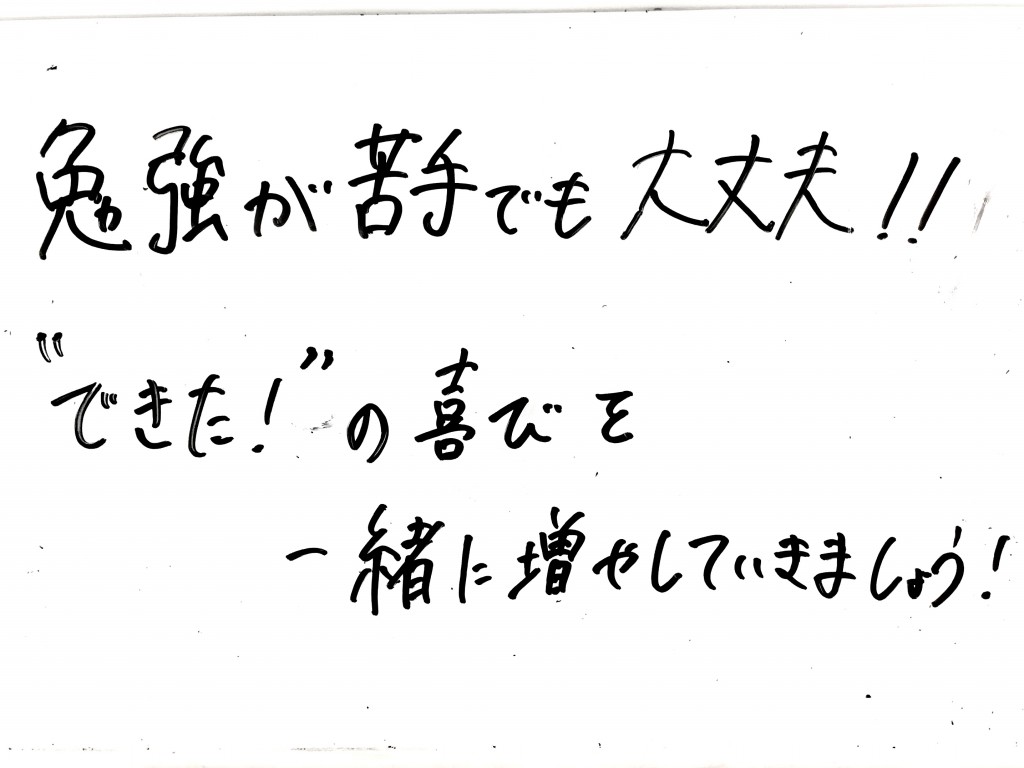 勉強が苦手でも大丈夫!!
"できた!"の喜びを
一緒に増やしていきましょう!